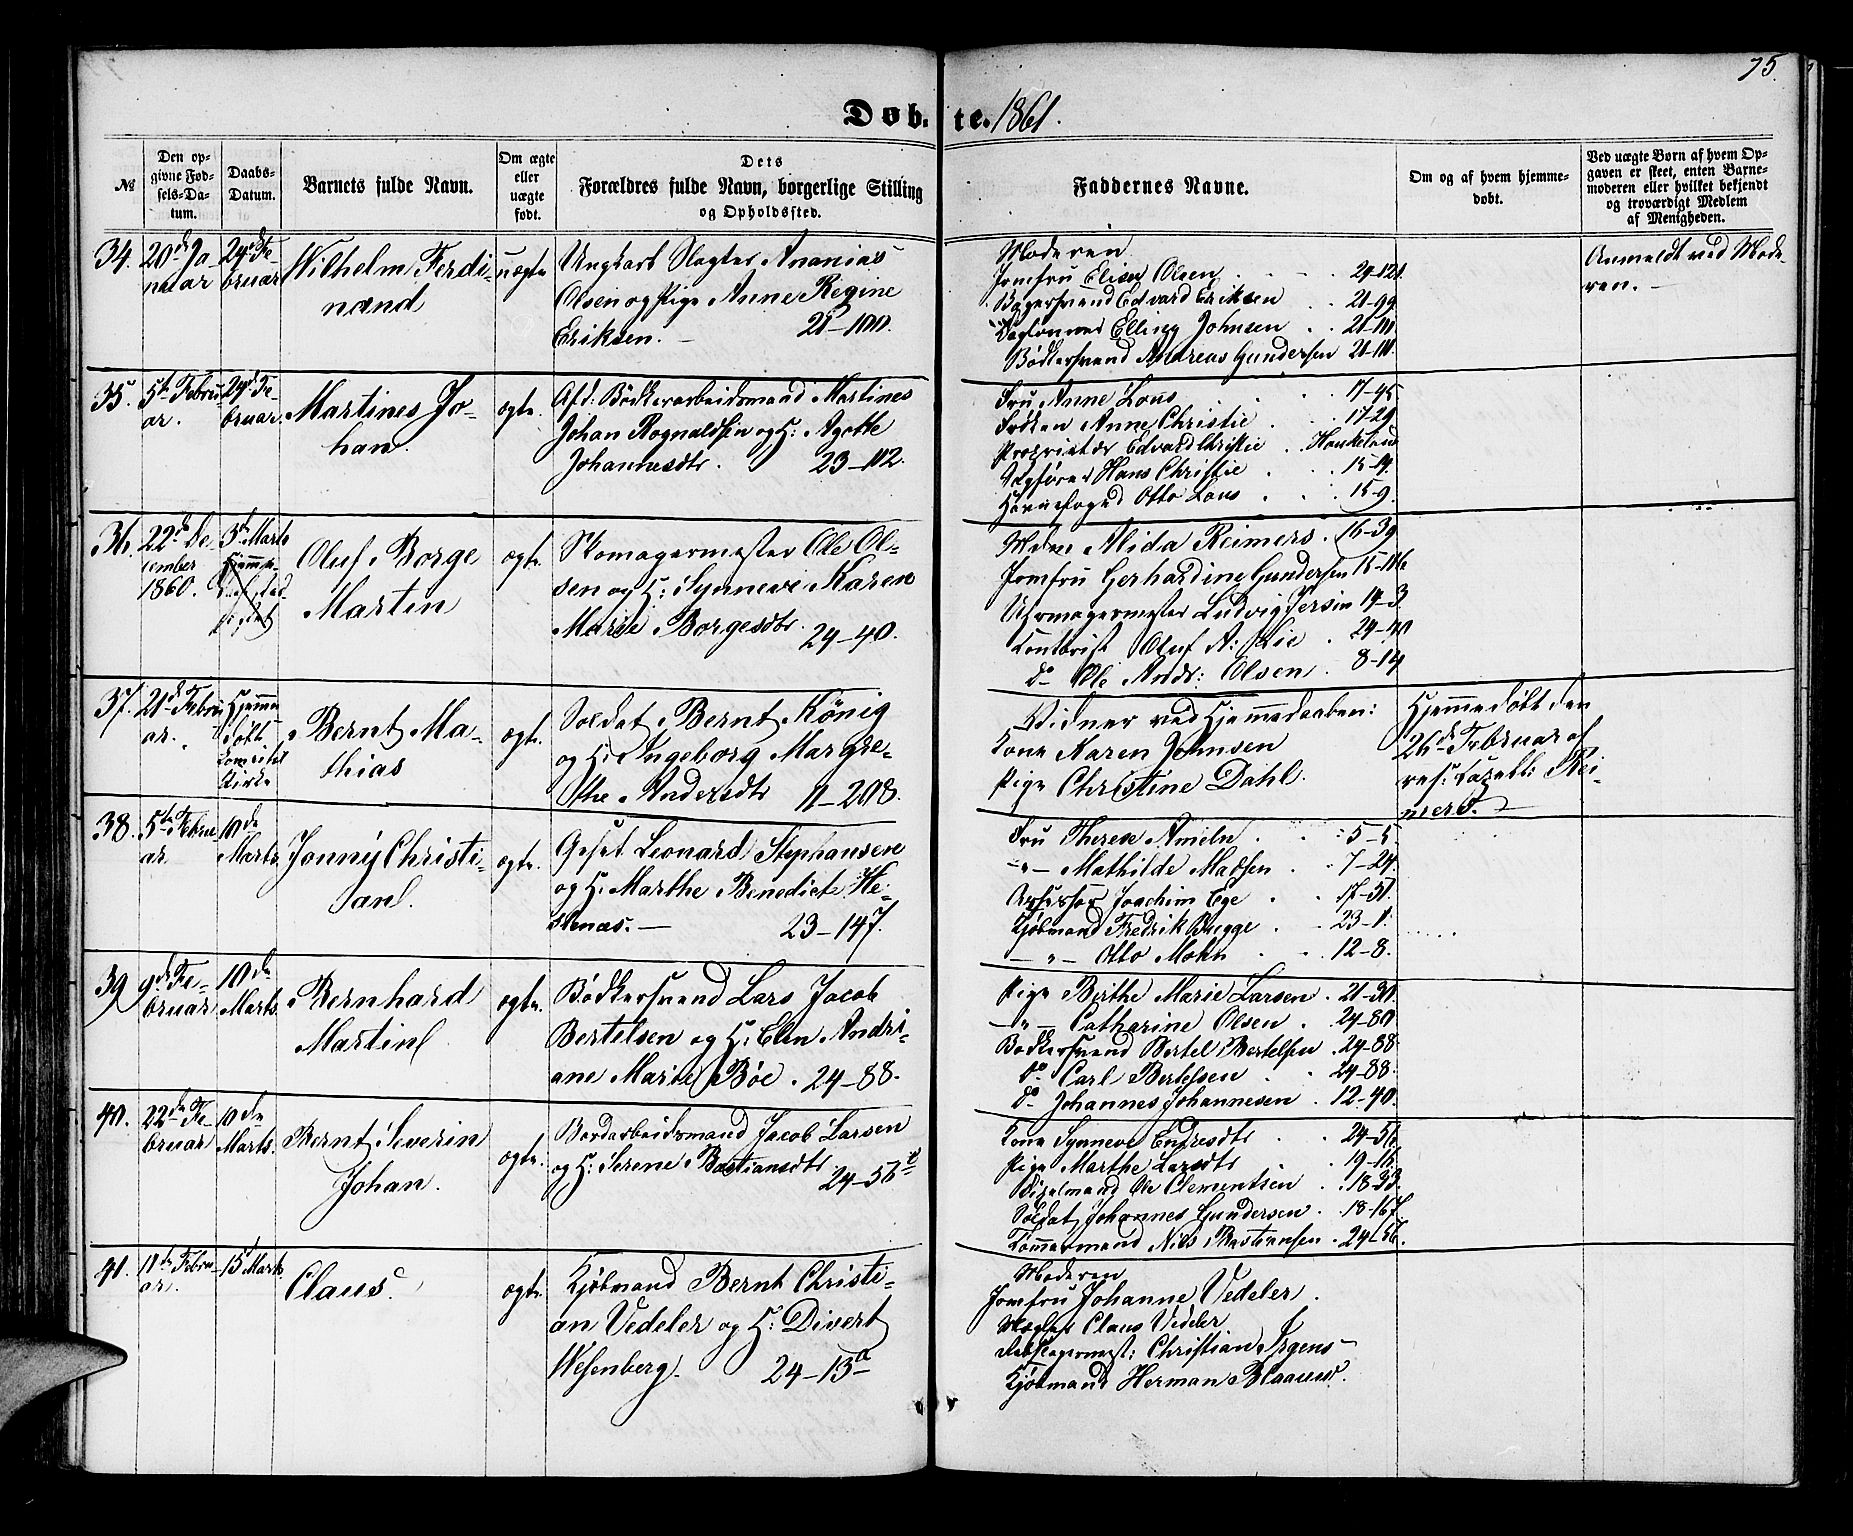 75.
Døbte. 1861.
№
Den opgivne Fødsels-Datum.
Daabs-Datum.
Barnets fulde Navn.
Om ægte eller uægte født.
Dets Forældres fulde Navn, borgerlige Stilling og Opholdssted.
Faddernes Navne.
Om og af hvem hjemmedøbt.
Ved uægte Børn af hvem Opgaven er skeet, enten Barnemoderen eller hvilket bekjendt og troværdigt Medlem af Menigheden.
34. 20de Ja- 24de Fe- Wilhelm Ferdi- uægte Ungkarl Slagter Ananias
nuar bruar nand Olsen og Pige Anne Regine
Eriksen. 21-100.
Moderen
Jomfru Elisen Olsen 24-121
Bagersvend Edvard Eriksen 21-99
Elling Johnsen 21-101
Bødkersvend Andreas Gundersen 21-101
Anmeldt ved Mode-
ren.
35. 5te Febru- 24de Fe- Martines Jo- ægte. Afd: Bødkerarbeidsmand Martines
ar. bruar. han. Johan Rognaldsen og H: Agothe
Johannesdtr. 23-112.
Fru Anne Lous 17-45
Frøken Anne Christie 17-29
Proprietær Edvard Christie Haukeland
Hans Christie 15-9
Havnefoged Otto Lous 15-9.
36. 22de De- 3de Marts Oluf Borge ægte. Skomagermester Ole Ol-
cember Martin sen og H: Synneve Karen
1860. Marie Borgesdtr. 24-40.
Mdme Alida Reimers 16-39
Jomfru Gerhardine Gundersen 15-
Uhrmagermester Ludvig Iersin 14-3.
Contorist Oluf A: Lie 24-40
do Ole Andr: Olsen 8-14
37. 21de Febru- Hjemme- Bernt Ma- ægte. Soldat Bernt König
ar. døbt thias og H: Ingeborg Margre-
Kirke the Andersdtr 11-208.
Vidner ved Hjemmedaaben:
Kone Karen Johnsen
Pige Christine Dahl.
Hjemmedøbt den
26de Februar af
res: Capell: Rei-
mers.
38. 5te Febru- 10de Jonny Christi- ægte. Leonard Stephansen
ar Marts an. og H: Marthe Benedicte He-
stenæs. 23-147.
Fru Therese Ameln 5-5
-"- Mathilde Madsen 7-24
Assessor Joachim Ege 17-31.
Kjøbmand Fredrik Bugge 23-1.
-"- Otto Mohn 12-8.
39 9de Fe- 10de Bernhard ægte. Bødkersvend Lars Jacob
bruar Marts. Martin Bertelsen og H: Elen Andri-
ane Marie Bøe. 24-88.
Pige Birthe Marie Larsen 21-30.
-"- Catharine Olsen 24-80
Bødkersvend Bertel Bertelsen 24-88.
do Carl Bertelsen 24-88.
do Johannes Johannesen 12-40.
40. 22de Fe- 10de Bernt Severin ægte. Bordarbeidsmand Jacob Larsen
bruar Marts. Johan. og H: Serene Bastiansdtr 24-56
Kone Synneve Endresdtr 24-56
Pige Marthe Larsdtr 19-16
Ole Clementsen 18-33.
Soldat Johannes Gundersen 18-167.
Tømmermand Nils Bastiansen 24-56.
41. 11te Febru- 15de Marts Claus ægte. Kjøbmand Bernt Christi-
ar. an Vedeler og H: Divert
Wesenberg. 24-13a
Moderen
Jomfru Johanne Vedeler.
Claus Vedeler
Rebslagermest: Christian Irgens
Kjøbmand Herman Blaauw.